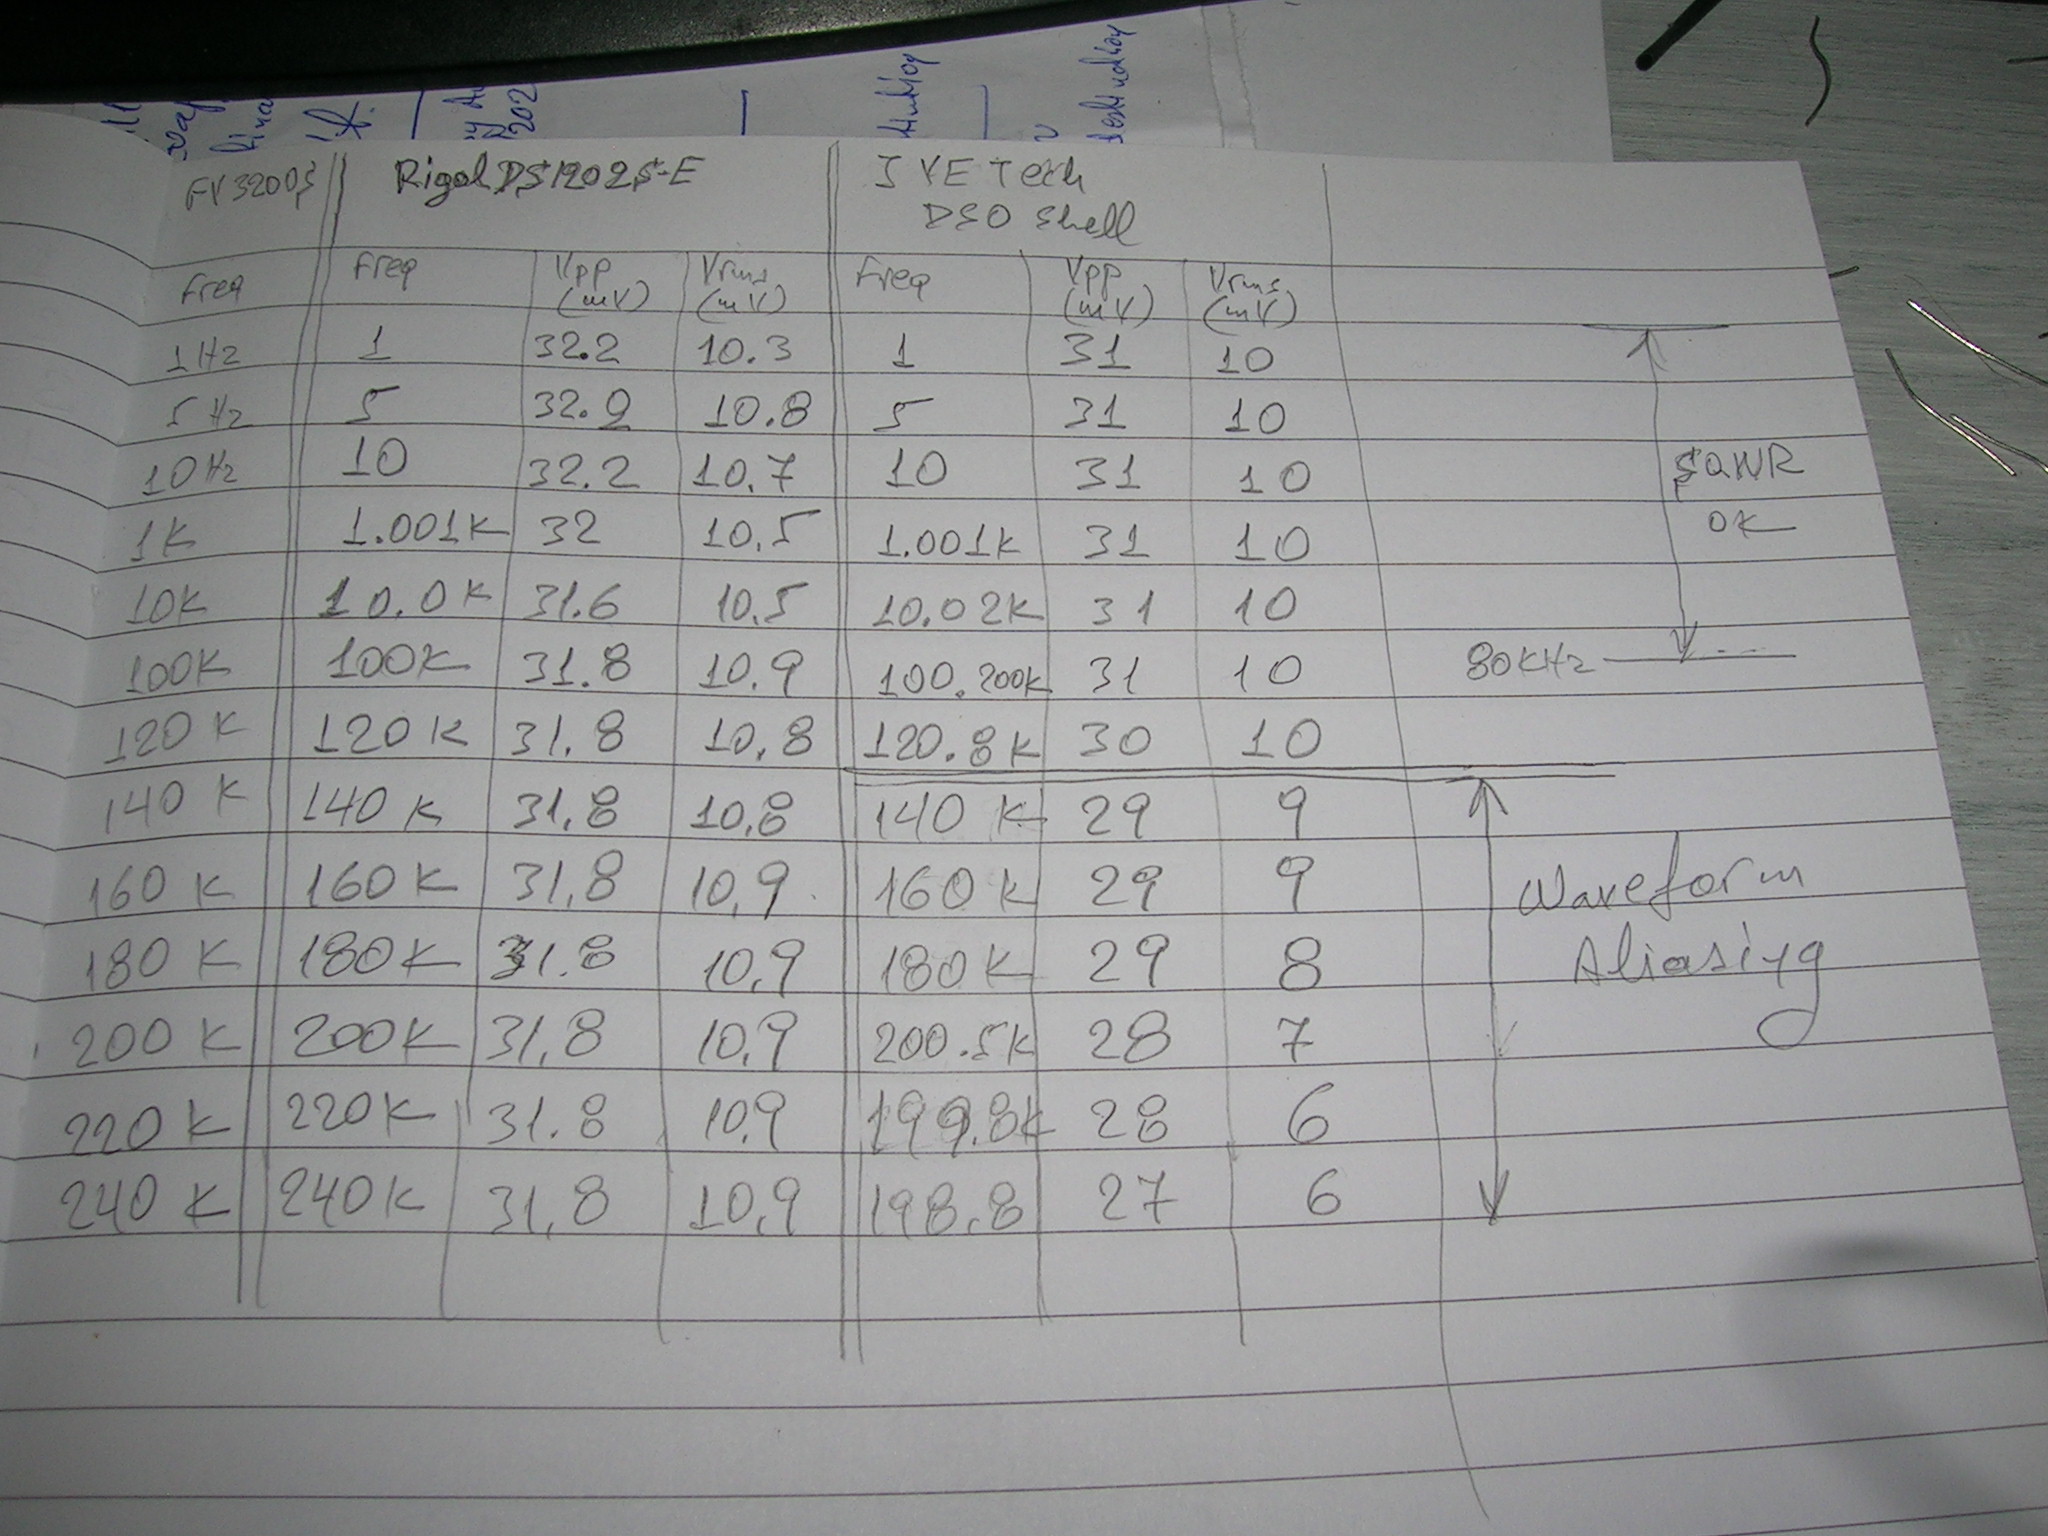 FY3200S Rigol DS1202S-E JYE Tech
DSO Shell
Freq Freq Vpp (mV) Vrms (mV) Freq Vpp (mV) Vrms (mV)
1Hz 1 32.2 10.3 1 31 10
5Hz 5 32.2 10.8 5 31 10
10Hz 10 32.2 10.7 10 31 10
SQWR
1K 1.001K 32 10.5 1.001K 31 10
OK
10K 10.0K 31.6 10.5 10.02K 31 10
100K 100K 31.8 10.9 100.200K 31 10
80KHz
120K 120K 31.8 10.8 120.8K 30 10
140K 140K 31.8 10.8 140K 29 9
160K 160K 31.8 10.9 160K 29 9
Waveform
180K 180K 31.8 10.9 180K 29 8
Aliasing
200K 200K 31.8 10.9 200.5K 28 7
220K 220K 31.8 10.9 199.8K 28 6
240K 240K 31.8 10.9 198.8 27 6